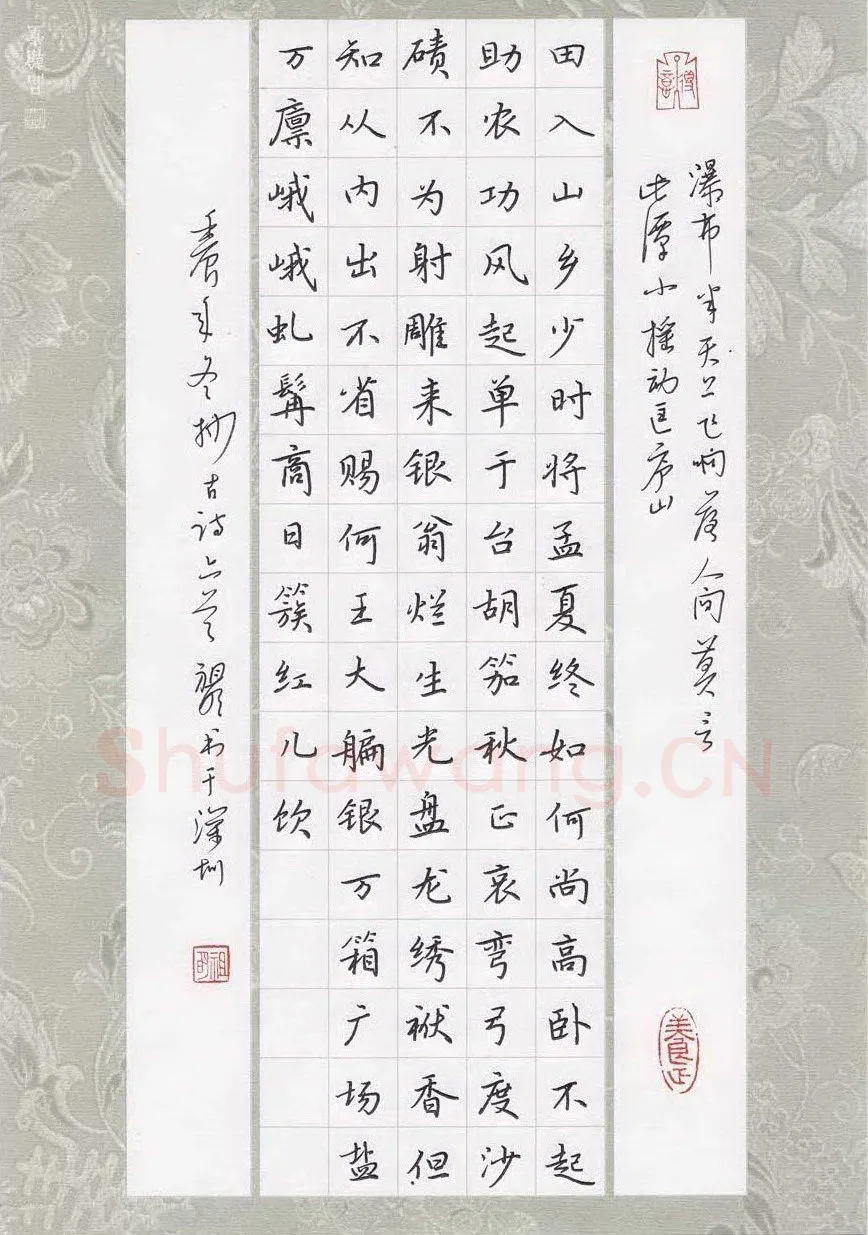 瀑布半天上飞响落人间莫言
此潭小摇动匡庐山
田入山乡少时将孟夏终如何尚高卧不起
助农功风起单于台胡笳秋正哀弯弓度沙
碛不为射雕来银翁烂生光盘龙绣袱香但
知从内出不省赐何王大艑银万箱广场盐
万廪峨峨虬髯商日簇红儿饮
壬辰年冬抄古诗六首祖明书于深圳
祖明
养正
Shufawang.CN